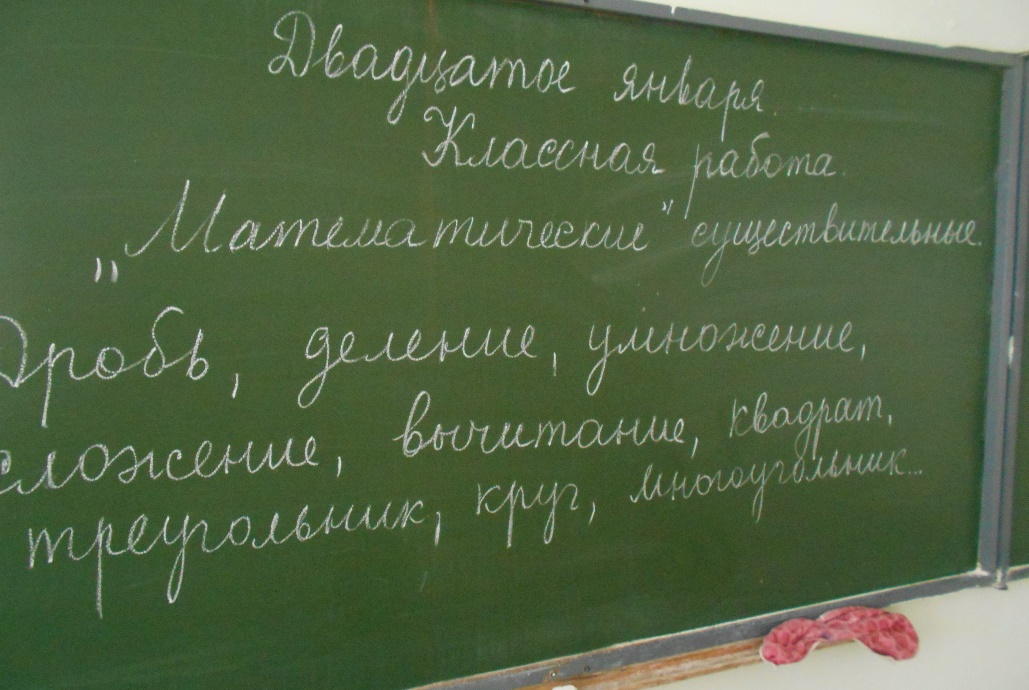 Двадцатое января.
Классная работа.
„Математические" существительные.
Дробь, деление, умножение,
сложение, вычитание, квадрат,
треугольник, круг, многоугольник...